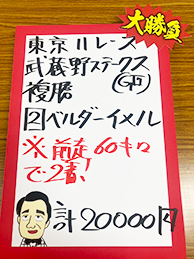 大勝負
東京11レース
武蔵野ステークス
(GⅢ)
複勝
2ベルダーイメル
※前走60キロ
で2着!
計20000円